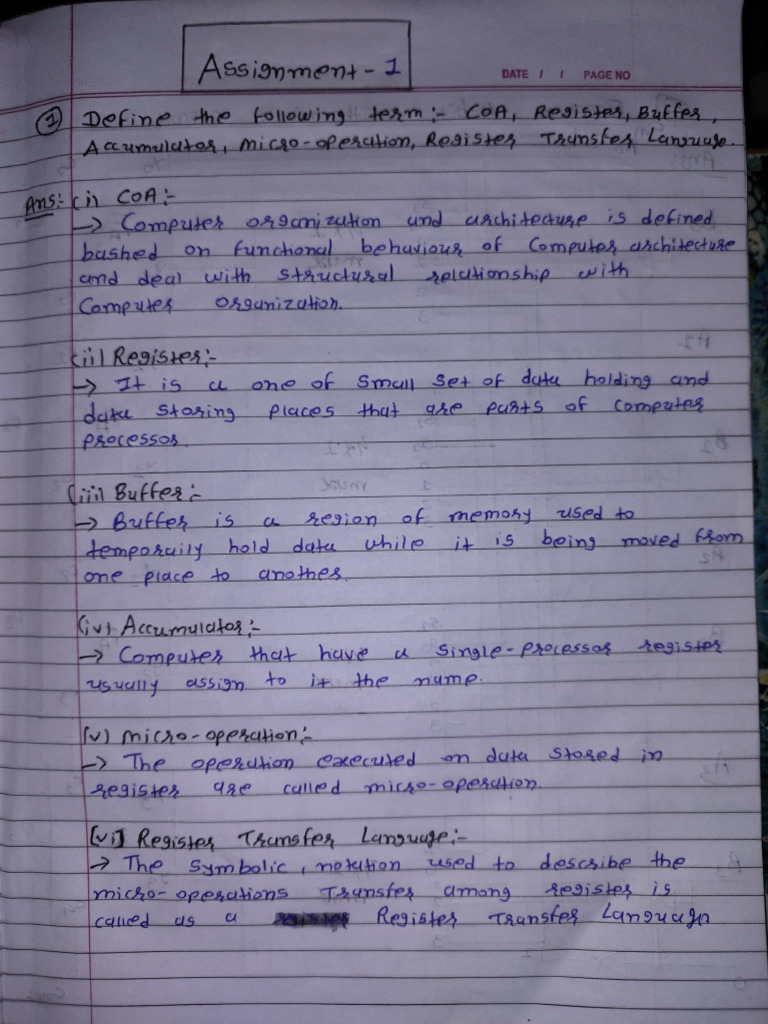 Assignment - 1
DATE / / PAGE NO
① Define the following term :- COA, Register, Buffer,
Accumulator, micro-operation, Register Transfer Language.
Ans:- (i) COA :-
→ Computer organization and architecture is defined
bashed on functional behaviour of Computer architecture
and deal with structural relationship with
Computer Organization.
(ii) Register :-
→ It is a one of small set of data holding and
data storing places that are parts of computer
processor.
(iii) Buffer :-
→ Buffer is a region of memory used to
temporaily hold data while it is being moved from
one place to another.
(iv) Accumulator :-
→ Computer that have a single-processor register
usually assign to it the name.
(v) micro-operation :-
→ The operation executed on data stored in
register are called micro-operation.
(vi) Register Transfer Language :-
→ The symbolic, notation used to describe the
micro-operations Transfer among register is
called as a Register Transfer Language